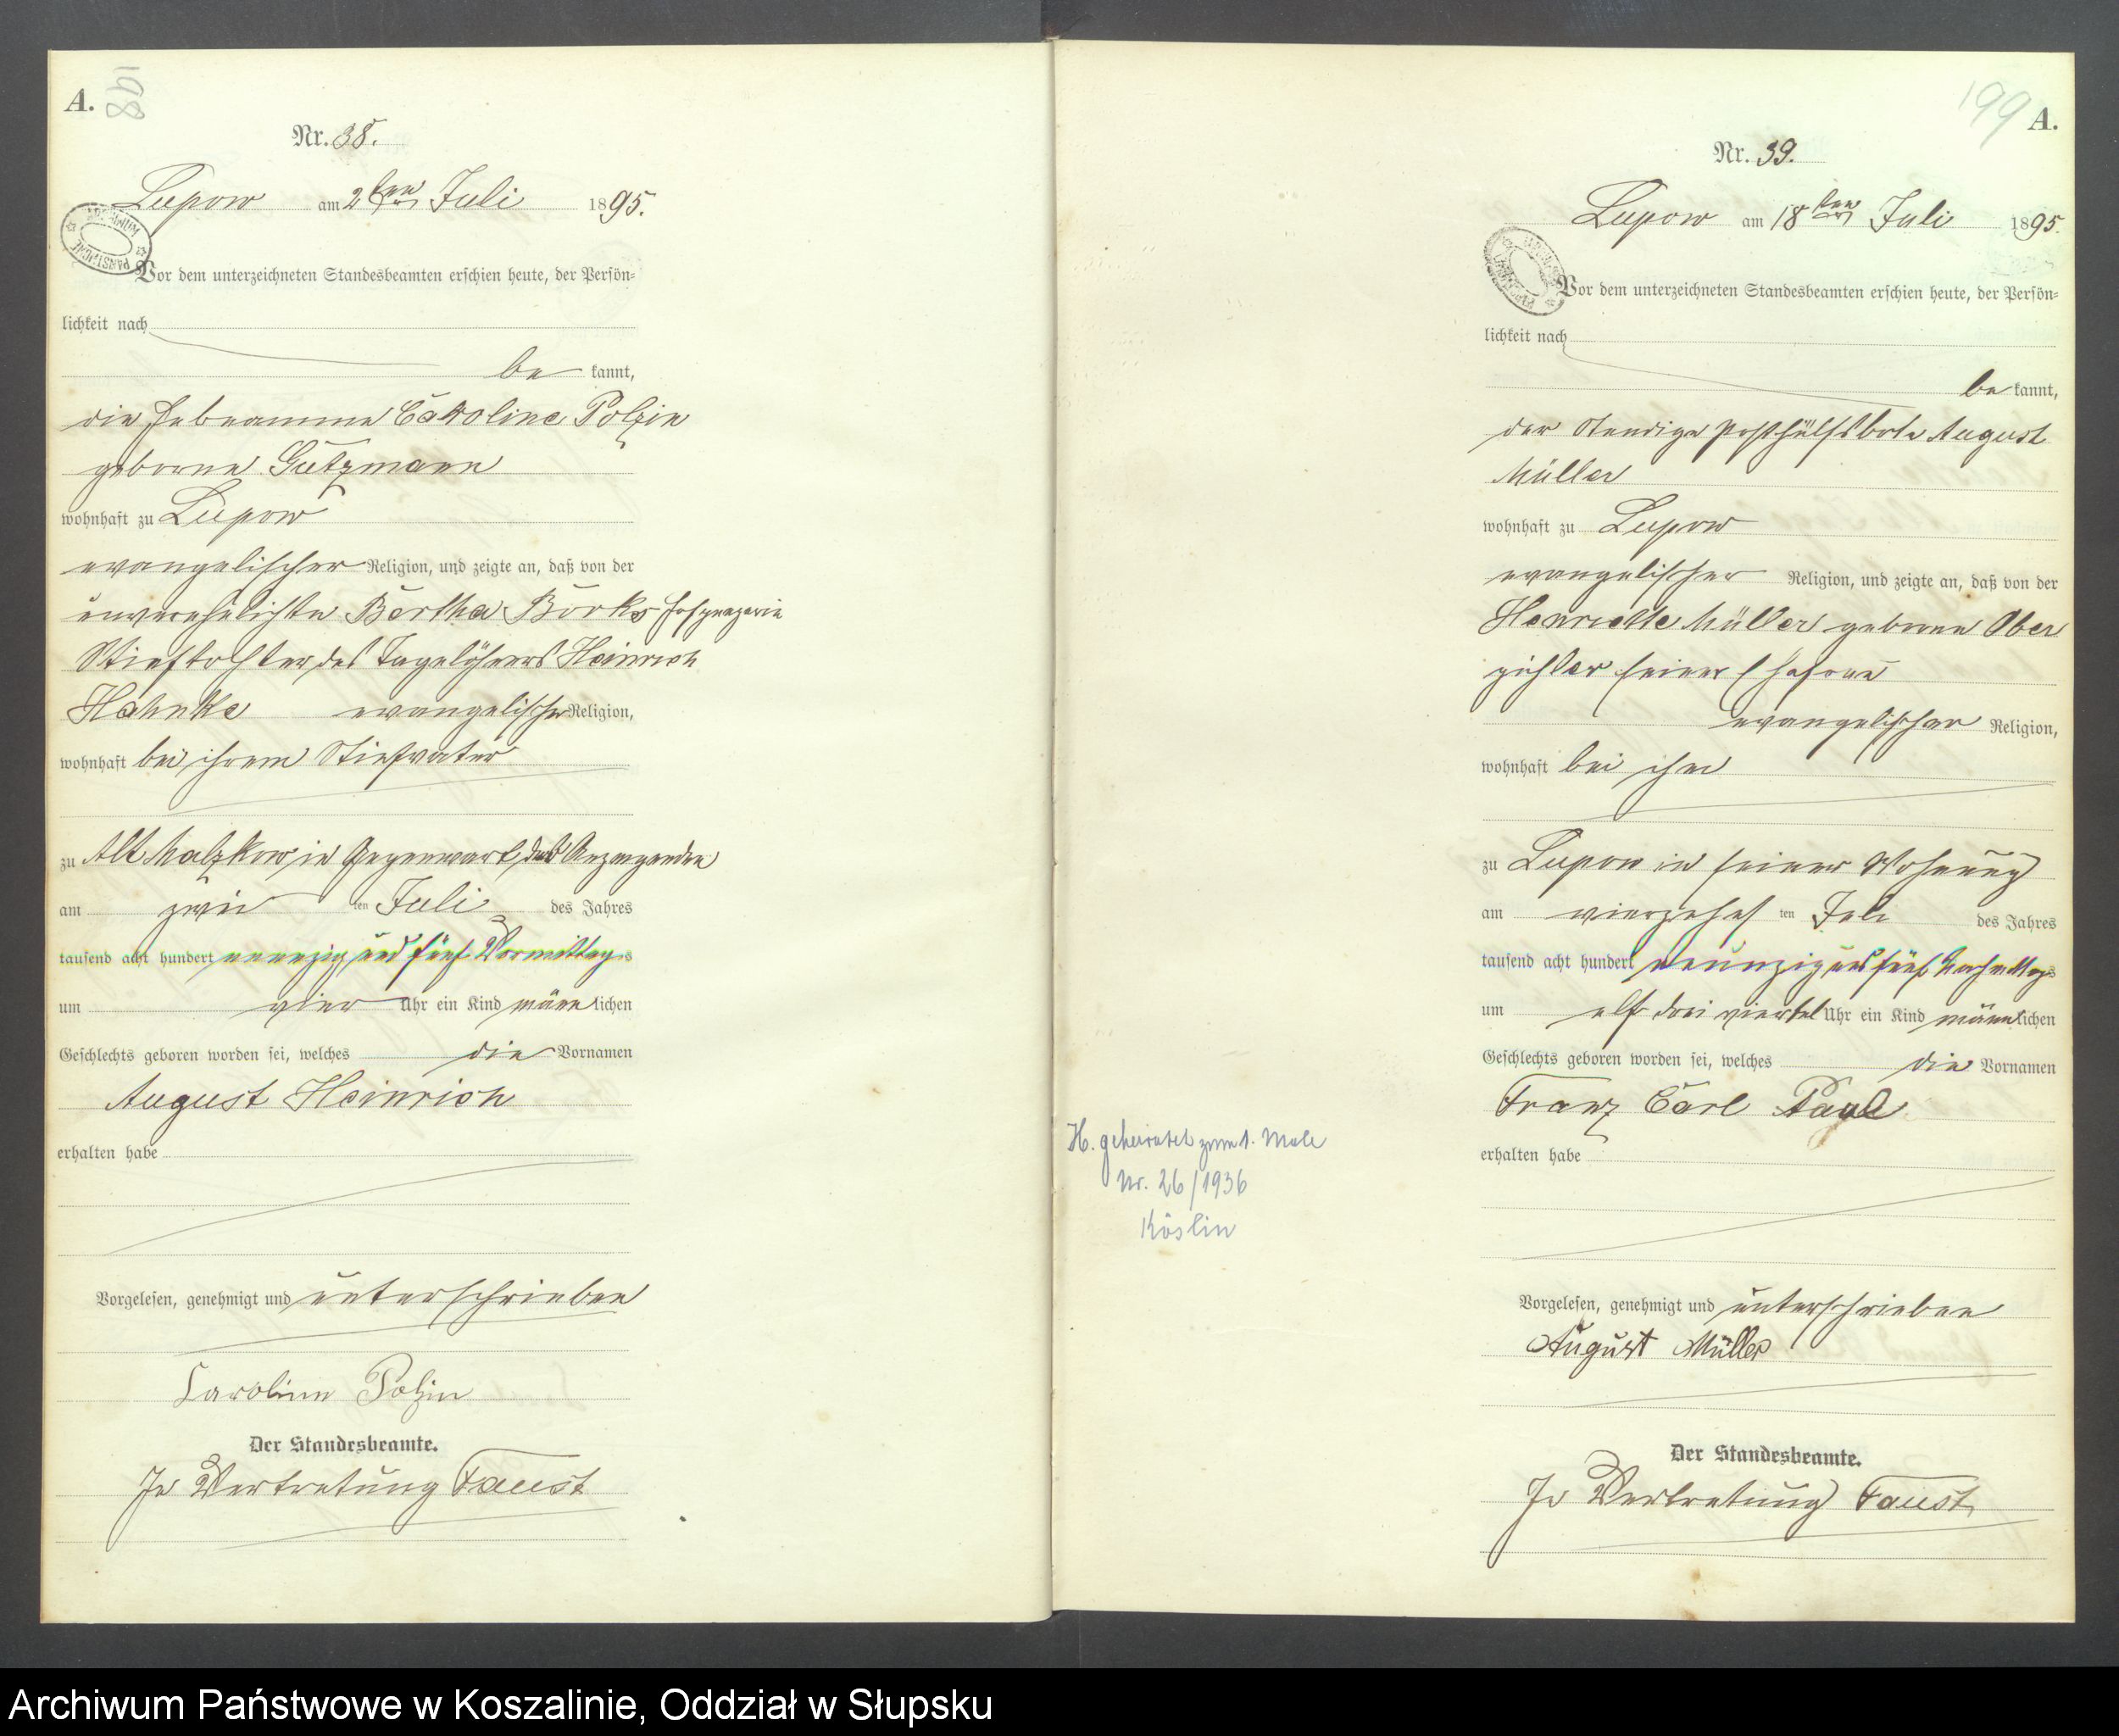 A.
198
Nr. 38.
Lupow am 2ten Juli 1895.
Vor dem unterzeichneten Standesbeamten erschien heute, der Persön-
lichkeit nach
be kannt,
die Hebeamme Caroline Polzin
geborne Gützmann
wohnhaft zu Lupow
evangelischer Religion, und zeigte an, daß von der
unverehelichte Bertha Börks
Stieftochter des Tagelöhners Heinrich
Hahnke evangelischer Religion,
wohnhaft bei ihrem Stiefvater
zu Alt Malzkow, in Gegenwart der Anzeigenden
am zwei ten Juli des Jahres
tausend acht hundert neunzig und fünf Vormittags
um vier Uhr ein Kind männlichen
Geschlechts geboren worden sei, welches die Vornamen
August Heinrich
erhalten habe
Vorgelesen, genehmigt und unterschrieben
Caroline Polzin
Der Standesbeamte.
In Vertretung Faust
199
A.
Nr. 39.
Lupow am 18ten Juli 1895.
Vor dem unterzeichneten Standesbeamten erschien heute, der Persön-
lichkeit nach
be kannt,
der Posthülfsbote August
Müller
wohnhaft zu Lupow
evangelischer Religion, und zeigte an, daß von der
Henriette Müller geborne Ober
seiner Ehefrau
evangelischer Religion,
wohnhaft bei ihm
zu Lupow in seiner Wohnung
am vierzehn ten Juli des Jahres
tausend acht hundert neunzig und fünf Nachmittags
um elf drei viertel Uhr ein Kind männlichen
Geschlechts geboren worden sei, welches die Vornamen
Franz Carl Paul
erhalten habe
H. geheiratet zum 1. Male
Nr. 26/1936
Köslin
Vorgelesen, genehmigt und unterschrieben
August Müller
Der Standesbeamte.
In Vertretung Faust
Archiwum Państwowe w Koszalinie, Oddział w Słupsku